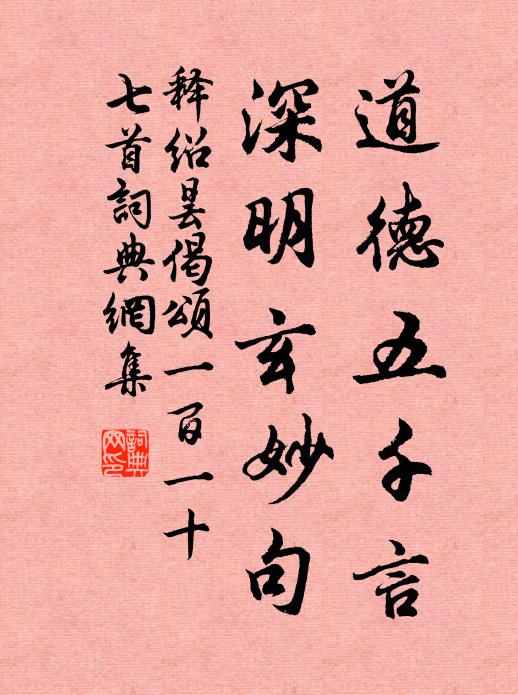 道德五千言
深明玄妙句
释绍昙偈颂一百一十
七首詞典網集
詞典網印